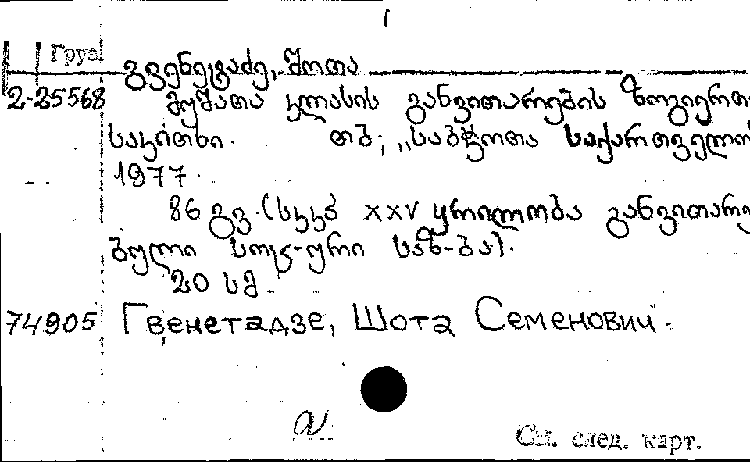 1
Груз
გვენეტაძე, შოთა
2-25568 მუშათა კლასის განვითარების ზოგიერთ
საკითხი. თბ., „საბჭოთა საქართველო
1977.
86 გვ. (სკკპ XXV ყრილობა განვითარე
ბული სოც-ური საზ-ბა).
20 სმ.
74905 Гвенетадзе, Шота Семенович.
См. след. карт.